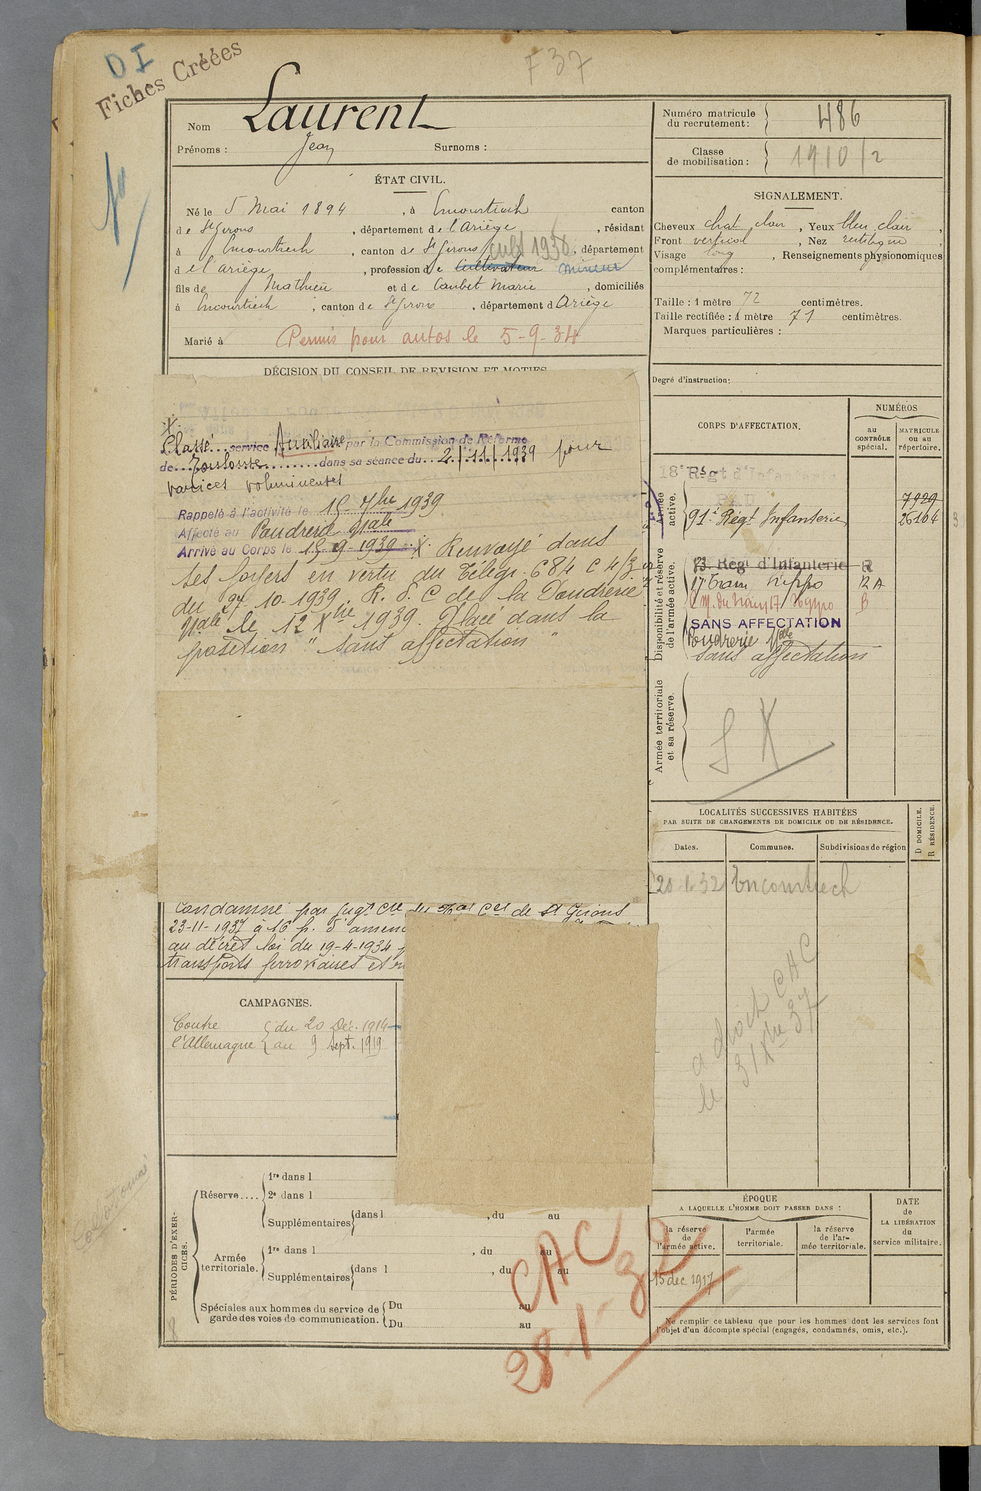 DI
Fiches Créées
F 37
Nom Laurent
Prénoms : Jean Surnoms :
Numéro matricule du recrutement : 486
Classe de mobilisation : 1910/2
ÉTAT CIVIL.
Né le 5 Mai 1894, à Encourtiech canton
de St Girons, département de l'Ariège, résidant
à Encourtiech, canton de St Girons cult 1936, département
d e l'Ariège, profession de Cultivateur mineur
fils de Mathieu et de Caubet Marie, domiciliés
à Encourtiech, canton de St Girons, département d'Ariège
Marié à Permis pour autos le 5-9-34
SIGNALEMENT.
Cheveux chat clair, Yeux bleu clair,
Front vertical, Nez rectiligne
Visage long, Renseignements physionomiques
complémentaires :
Taille : 1 mètre 72 centimètres.
Taille rectifiée : 1 mètre 71 centimètres.
Marques particulières :
Degré d'instruction :
DÉCISION DU CONSEIL DE REVISION ET MOTIFS
Classé service Auxiliaire par la Commission de Réforme
de Toulouse dans sa séance du 2/11/1939 pour
varices volumineuses
Rappelé à l'activité le 15 7bre 1939
Affecté au Poudrerie Nale
Arrivé au Corps le 15-9-1939 X Renvoyé dans
ses foyers en vertu du Télégr. 684 C 4/3
du 27.10.1939. R. d. C de la Poudrerie
Nale le 12 Xbre 1939. Placé dans la
position "sans affectation"
CORPS D'AFFECTATION.
NUMÉROS
au CONTRÔLE spécial.
MATRICULE ou au répertoire.
Armée active.
18e Régt d'Infanterie
PAU
7929
91e Régt Infanterie 26104
Disponibilité et réserve de l'armée active.
83. Régt d'Infanterie R
17 Train hippo RA
C.M. du train 17 Hippo B
SANS AFFECTATION
Poudrerie Nale
sans affectation
Armée territoriale et sa réserve.
S X
LOCALITÉS SUCCESSIVES HABITÉES
PAR SUITE DE CHANGEMENTS DE DOMICILE OU DE RÉSIDENCE.
Dates. Communes. Subdivisions de région D DOMICILE. R RÉSIDENCE.
20 1 32 Encourtiech
a droit CAC
le 31 Xbre 37
Condamné par Jugt Cel du Tral Cel de St Girons
23-11-1937 à 16 f. d'amen
au décret loi du 19-4-1934
transports ferroviaires et
CAMPAGNES.
Contre du 20 Déc. 1914
l'Allemagne au 9 Sept. 1919
PÉRIODES D'EXERCICES.
Réserve.... 1re dans l
2e dans l
Supplémentaires dans l , du au
Armée territoriale. 1re dans l , du au
Supplémentaires dans l , du au
Spéciales aux hommes du service de garde des voies de communication. Du au
Du au
CAC 92
28-1-
ÉPOQUE
A LAQUELLE L'HOMME DOIT PASSER DANS :
la réserve de l'armée active.
l'armée territoriale.
la réserve de l'armée territoriale.
DATE de LA LIBÉRATION du service militaire.
15 dec 1917
Ne remplir ce tableau que pour les hommes dont les services font
l'objet d'un décompte spécial (engagés, condamnés, omis, etc.).